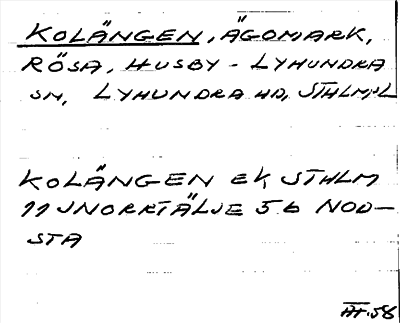 KOLÄNGEN, ÄGOMARK,
RÖSA, HUSBY - LYHUNDRA
SN, LYHUNDRA HD, STHLM;L
KOLÄNGEN EK, STHLM
11 J NORRTÄLJE 5 b NOD-
STA
58